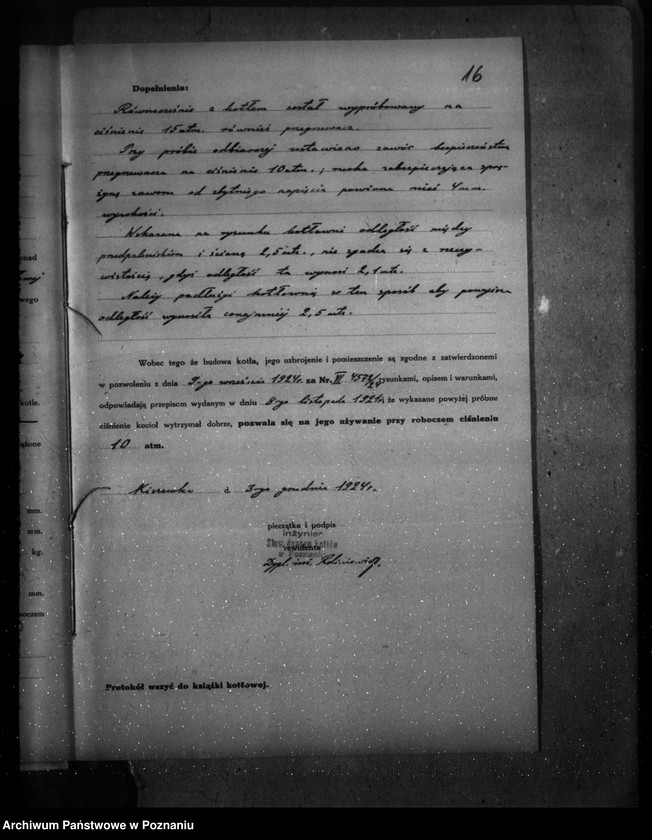 16
Dopełnienia:
Równocześnie z kotłem został wypróbowany na
ciśnienie 15 atm. również przegrzewacz.
Przy próbie odbiorczej ustawiono zawór bezpieczeństwa
przegrzewacza na ciśnienie 10 atm., zabezpieczająca sprę-
żynę zaworu od zbytniego napięcia powinna mieć 4 mm.
wysokości.
Wskazana na rysunku kotłowni odległość między
przedpaleniskiem i ścianą 2,5 mtr., nie zgadza się z rzeczy-
wistością, gdyż odległość ta wynosi 2,1 mtr.
Należy kotłownię w ten sposób aby powyższa
odległość wynosiła conajmniej 2,5 mtr.
Wobec tego że budowa kotła, jego uzbrojenie i pomieszczenie są zgodne z zatwierdzonemi
w pozwoleniu z dnia 9-go września 1924 r. za Nr. VI rysunkami, opisem i warunkami,
odpowiadają przepisom wydanym w dniu 8-go listopada 1921 r. że wykazane powyżej próbne
ciśnienie kocioł wytrzymał dobrze, pozwala się na jego używanie przy roboczem ciśnieniu
10 atm.
Kiszewko d. 3-go grudnia 1924 r.
pieczątka i podpis
inżynier
Stow. dozoru kotłów
rewidenta
w Poznaniu
Dypl. inż.
Protokół wszyć do książki kotłowej.
onad
wego
kotle.
ążone
mm.
mm.
kg.
mm.
boczem
Archiwum Państwowe w Poznaniu